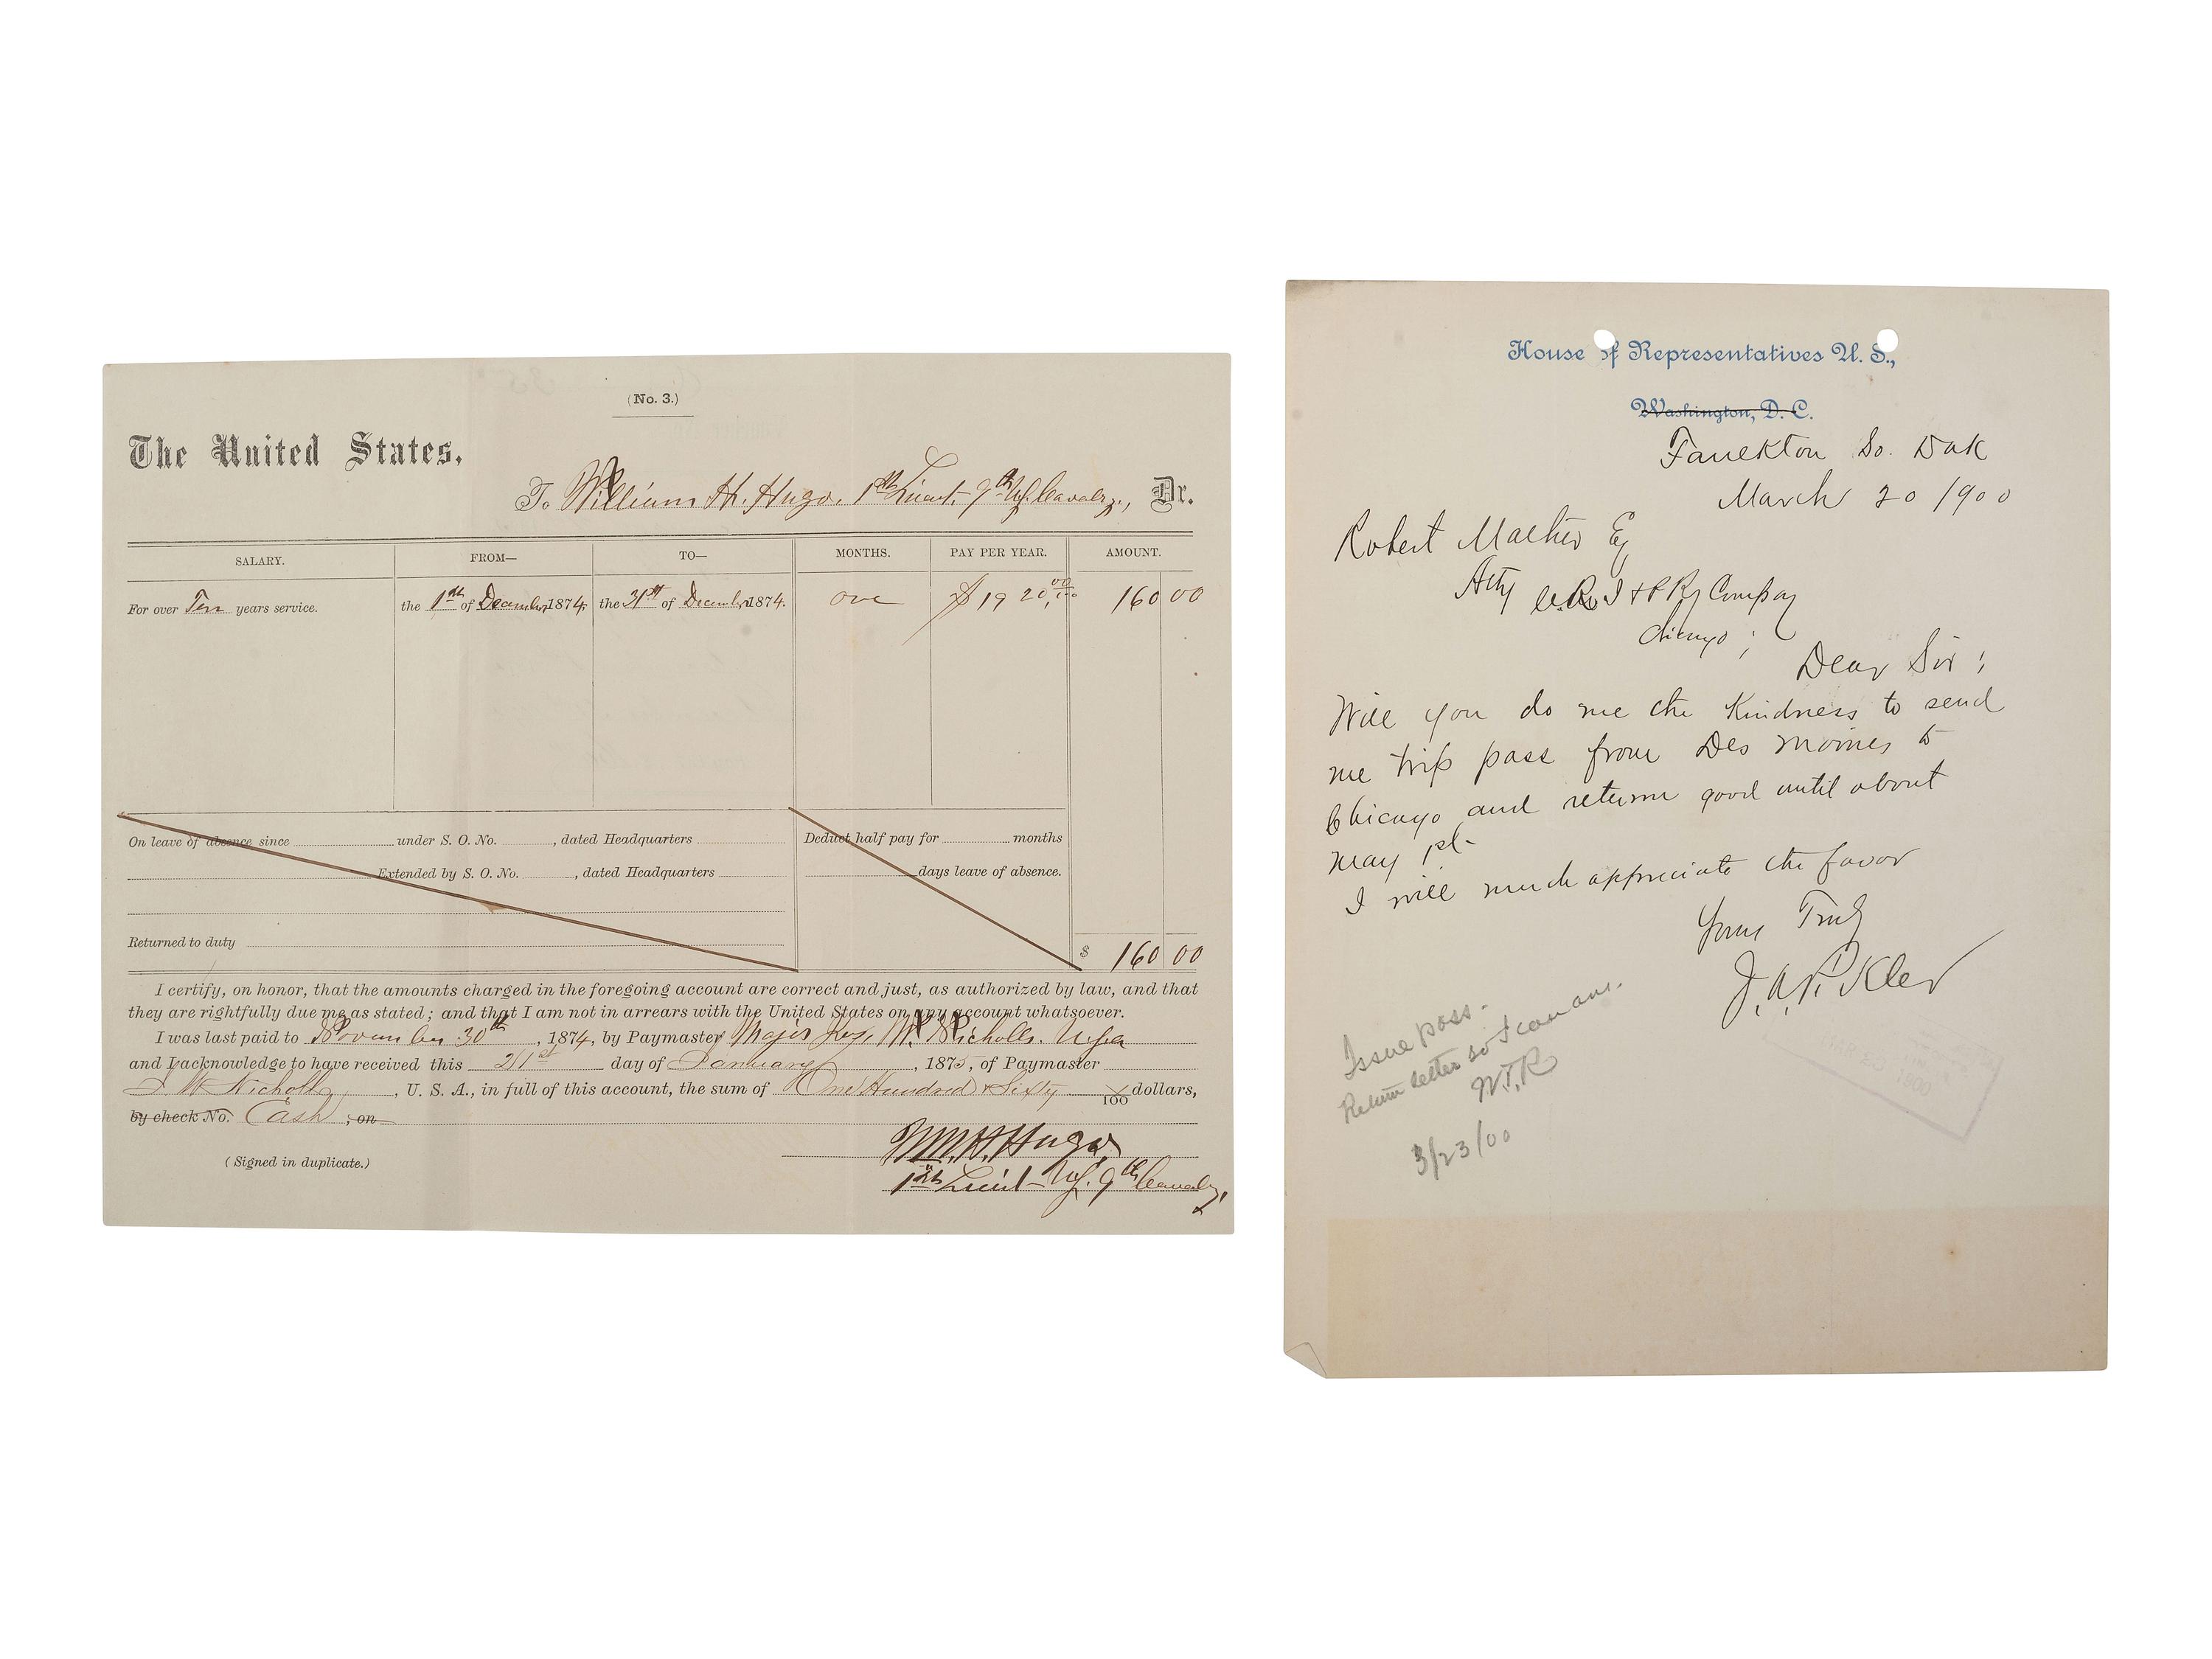 (No. 3.)
The United States,
To William H. Hugo, 1st Lieut. 9th U.S. Cavalry, Dr.
SALARY. FROM— TO— MONTHS. PAY PER YEAR. AMOUNT.
For over Ten years service. the 1st of December, 1874, the 31st of December, 1874. one $1920,00 160 00
On leave of absence since under S. O. No. , dated Headquarters Deduct half pay for months
Extended by S. O. No. , dated Headquarters days leave of absence.
Returned to duty
$ 160 00
I certify, on honor, that the amounts charged in the foregoing account are correct and just, as authorized by law, and that
they are rightfully due me as stated; and that I am not in arrears with the United States on any account whatsoever.
I was last paid to November 30th, 1874, by Paymaster Major W. Nicholls. U.S.A
and I acknowledge to have received this 21st day of January, 1875, of Paymaster
W Nicholls, U. S. A., in full of this account, the sum of One Hundred & Sixty X/100 dollars,
by check No. Cash, on
(Signed in duplicate.)
Wm. H. Hugo,
1st Lieut U.S. 9th Cavalry,
House of Representatives U. S.,
Washington, D. C.
Faulkton So. Dak
March 20 1900
Robert Mather Esq
Atty C.R.I & P Ry Company
Chicago;
Dear Sir;
Will you do me the kindness to send
me trip pass from Des Moines to
Chicago and return good until about
May 1st.
I will much appreciate the favor
Yours Truly
J. A. Pickler
Issue pass.
Return letter so I can ans.
W.T.R
3/23/00